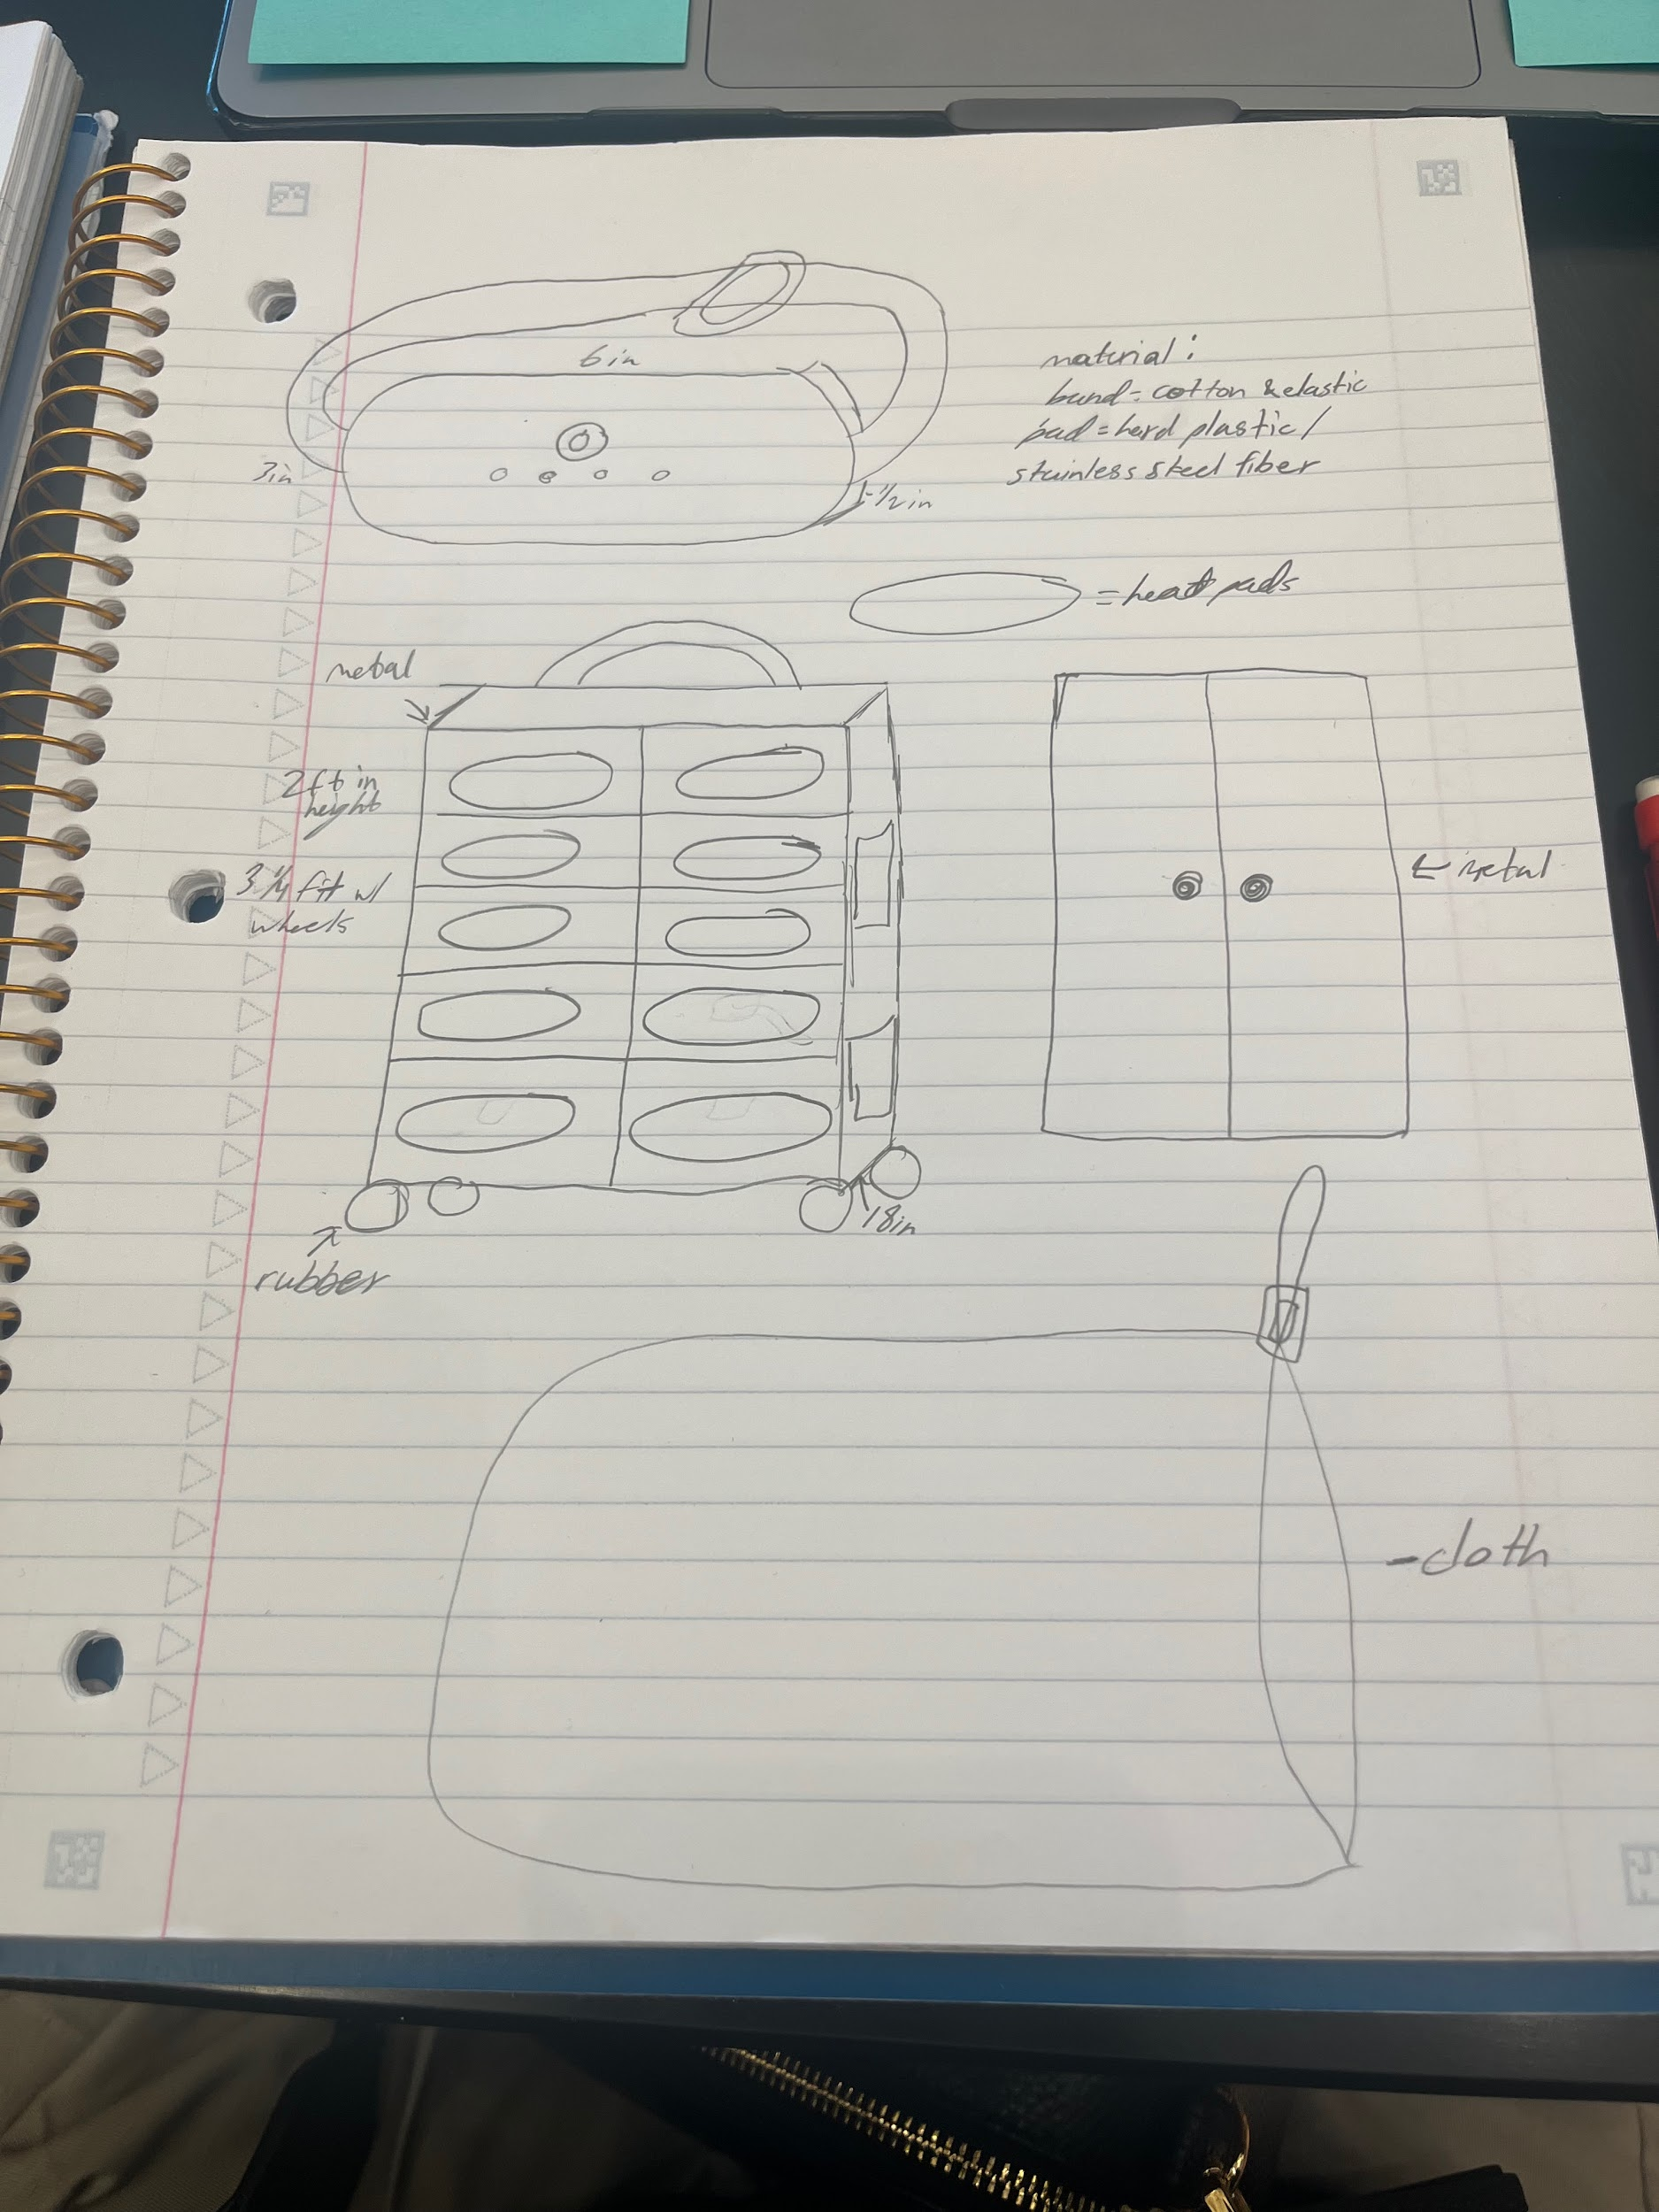 6 in
material:
band = cotton & elastic
pad = hard plastic/
stainless steel fiber
3in
1/2 in
= heat pads
metal
2ft in
height
3 1/4 fit w/
wheels
← metal
18in
rubber
- cloth